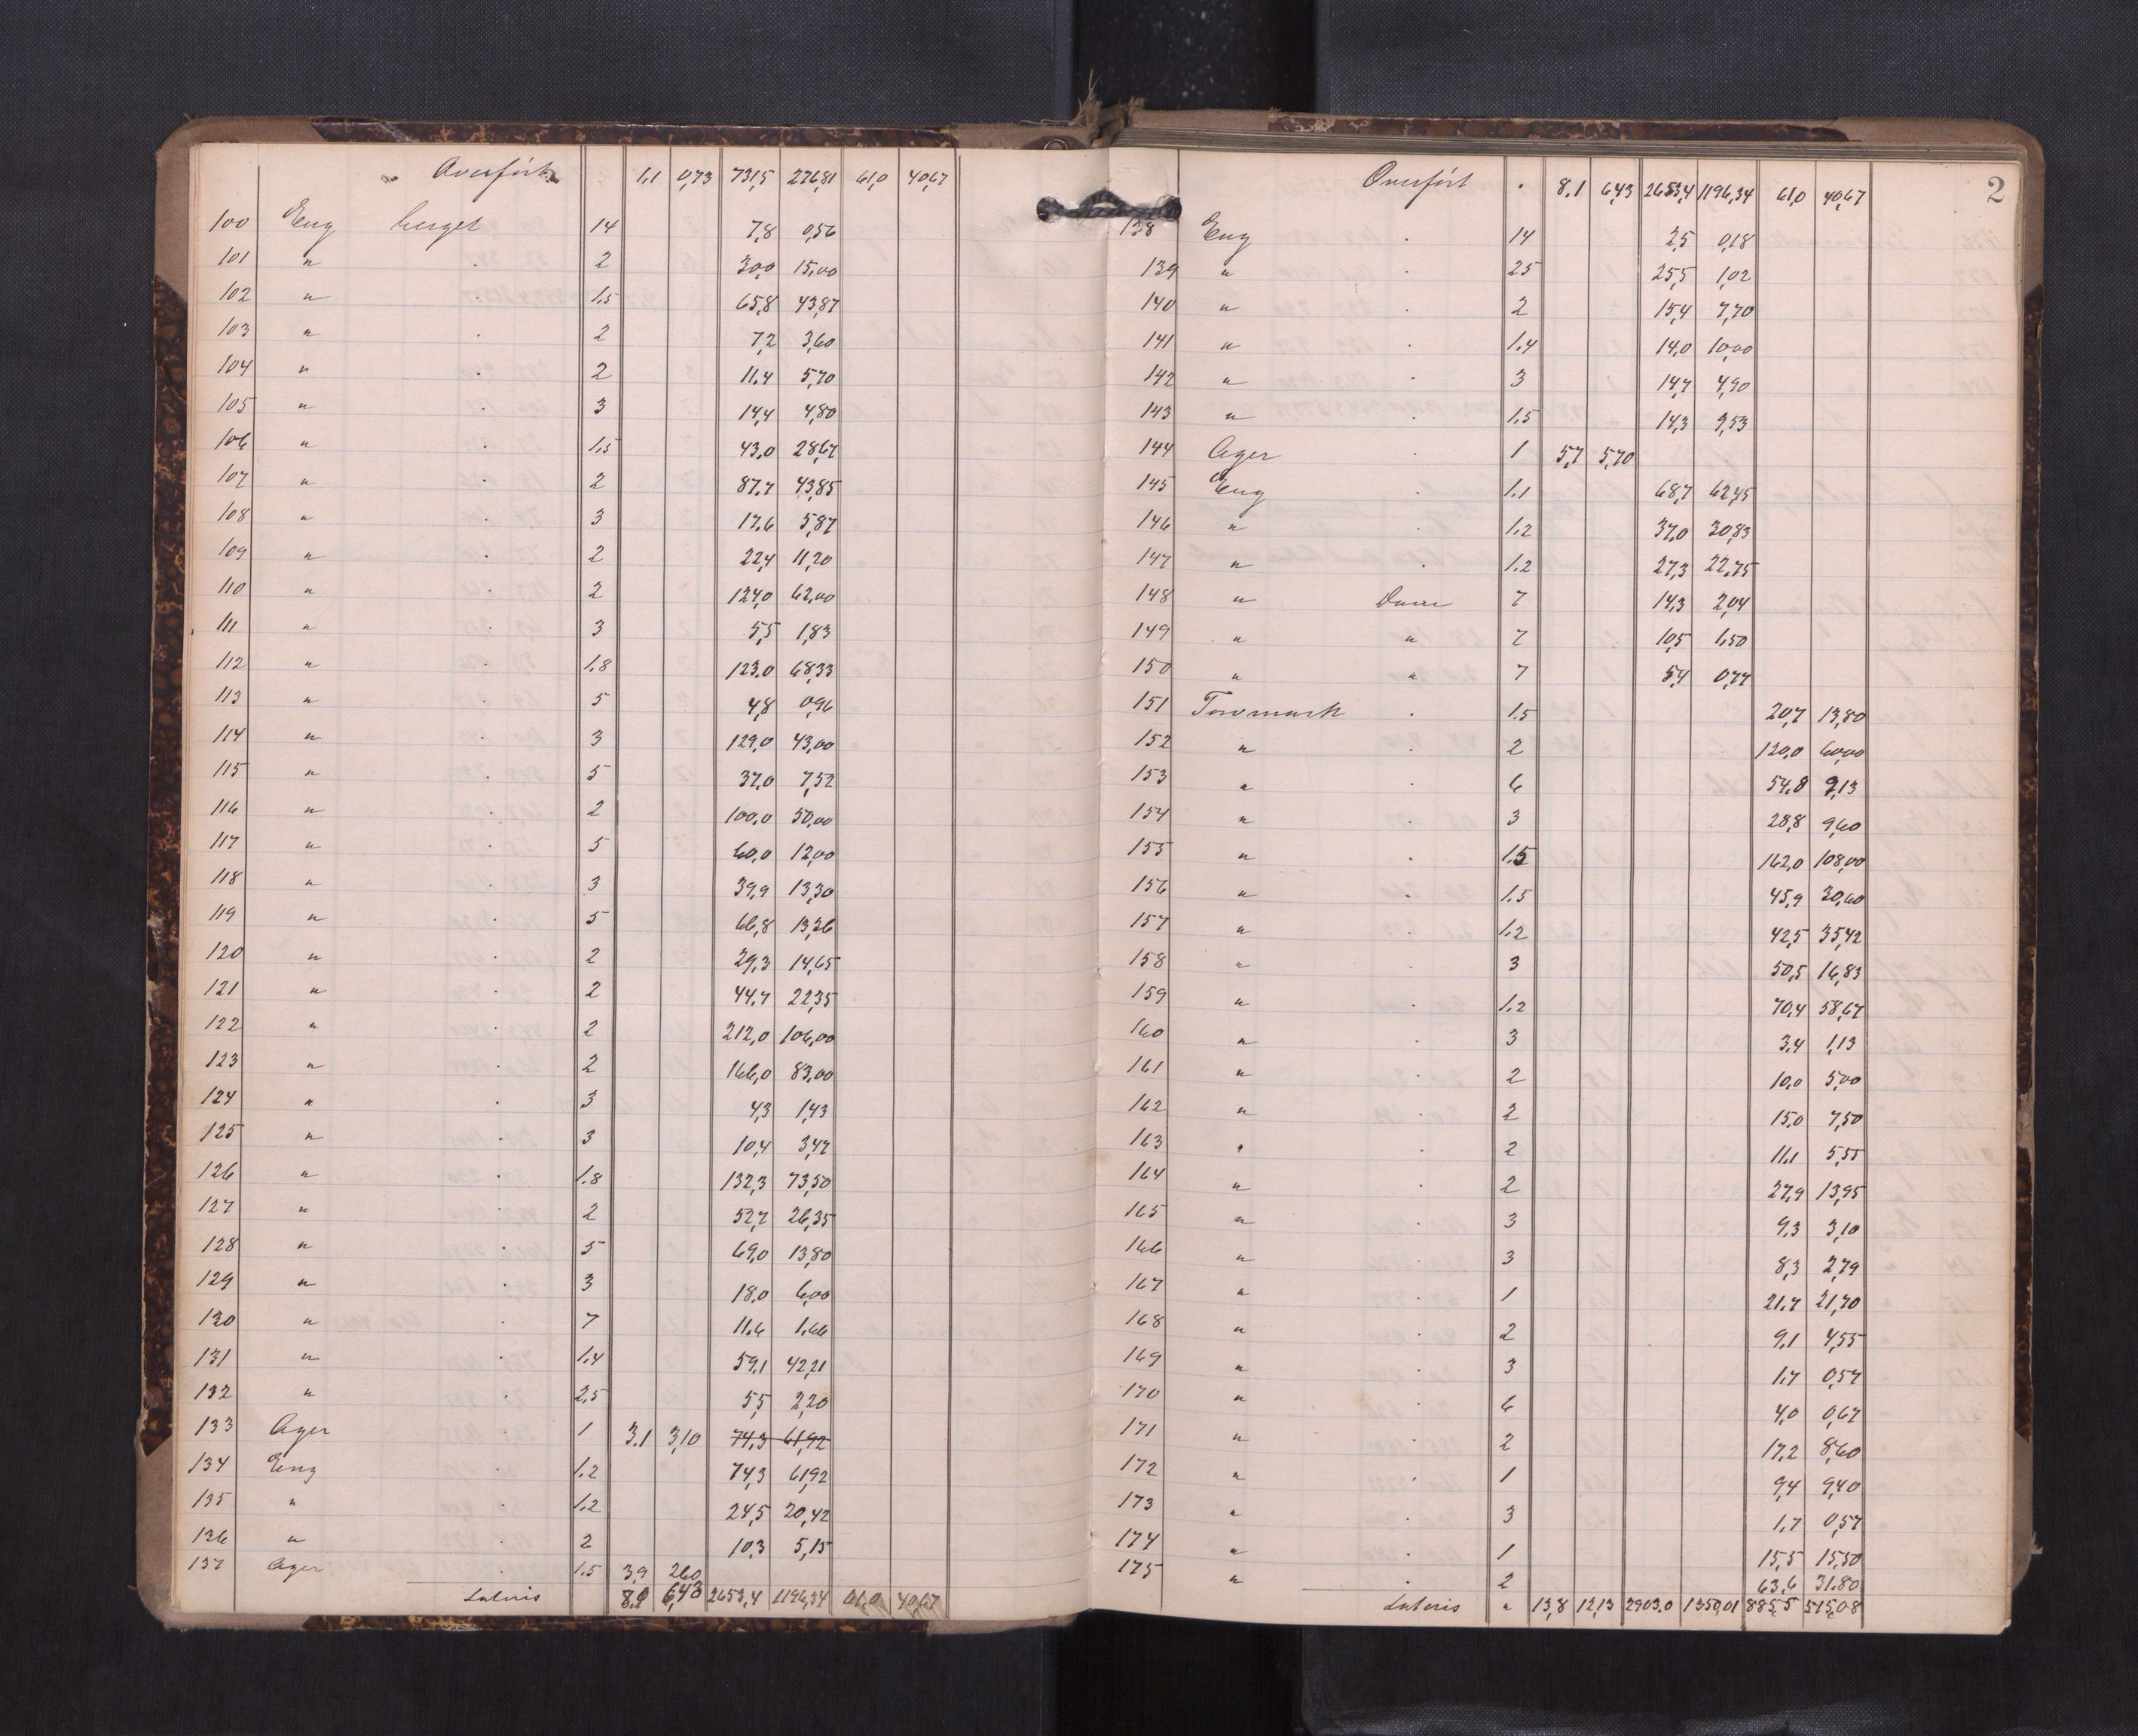 Overført 1,1 0,73 731,5 276,81 61,0 40,67
100 Eng 14 7,8 0,56
101 " 2 30,0 15,00
102 " 1.5 65,8 43,87
103 " 2 7,2 3,60
104 " 2 11.4 5,70
105 " 3 14,4 4,80
106 " 1,5 43,0 28,67
107 " 2 87.7 43,85
108 " 3 17,6 5,87
109 " 2 22,4 11,20
110 " 2 124,0 62,00
111 " 3 5,5 1,83
112 " 1,8 123,0 68,33
113 " 5 4,8 0,96
114 " 3 129,0 43,00
115 " 5 37,0 7,52
116 " 2 100,0 50,00
117 " 5 60,0 12,00
118 " 3 39,9 13,30
119 " 5 66,8 13,36
120 " 2 29,3 14,65
121 " 2 44,7 22,35
122 " 2 212,0 106,00
123 " 2 166,0 83,00
124 " 3 4,3 1,43
125 " 3 10,4 3,47
126 " 1.8 132,3 73,50
127 " 2 52,7 26,35
128 " 5 69,0 13,80
129 " 3 18,0 6,00
130 " 7 11,6 1,66
131 " 1,4 59,1 42,21
132 " 2,5 5,5 2,20
133 Ager 1 3.1 3,10 74,3 61,92
134 Eng 1.2 74,3 61,92
135 " 1.2 24,5 20,42
136 " 2 10,3 5,15
137 Ager 1.5 3,9 2,60
Lateris 8,1 6,43 2653,4 1196,34 61,0 40,67
2
Overført 8,1 6,43 2653,4 1196,34 61,0 40,67
138 Eng 14 2,5 0,18
139 " 25 25,5 1,02
140 " 2 15,4 7,70
141 " 1.4 14,0 10,00
142 " 3 14,7 4,90
143 " 1,5 14,3 9,53
144 Ager 1 5,7 5,70
145 Eng 1.1 68,7 62,45
146 " 1.2 37,0 30,83
147 " 1.2 27,3 22,75
148 " 7 14,3 2,04
149 " " 7 10,5 1,50
150 " " 7 5,4 0,77
151 Torvmark 1.5 20,7 13,80
152 " 2 120,0 60,00
153 " 6 54,8 9,13
154 " 3 28,8 9,60
155 " 1.5 162,0 108,00
156 " 1.5 45,9 30,60
157 " 1.2 42,5 35,42
158 " 3 50,5 16,83
159 " 1.2 70,4 58,67
160 " 3 3,4 1,13
161 " 2 10,0 5,00
162 " 2 15,0 7,50
163 " 2 11,1 5,55
164 " 2 27,9 13,95
165 " 3 9,3 3,10
166 " 3 8,3 2,79
167 " 1 21,7 21,70
168 " 2 9,1 4,55
169 " 3 1,7 0,57
170 " 6 4,0 0,67
171 " 2 17,2 8,60
172 " 1 9,4 9,40
173 " 3 1,7 0,57
174 " 1 15,5 15,50
175 " 2 63,6 31,80
Lateris " 13,8 12,13 2903,0 1350,01 885,5 515,08